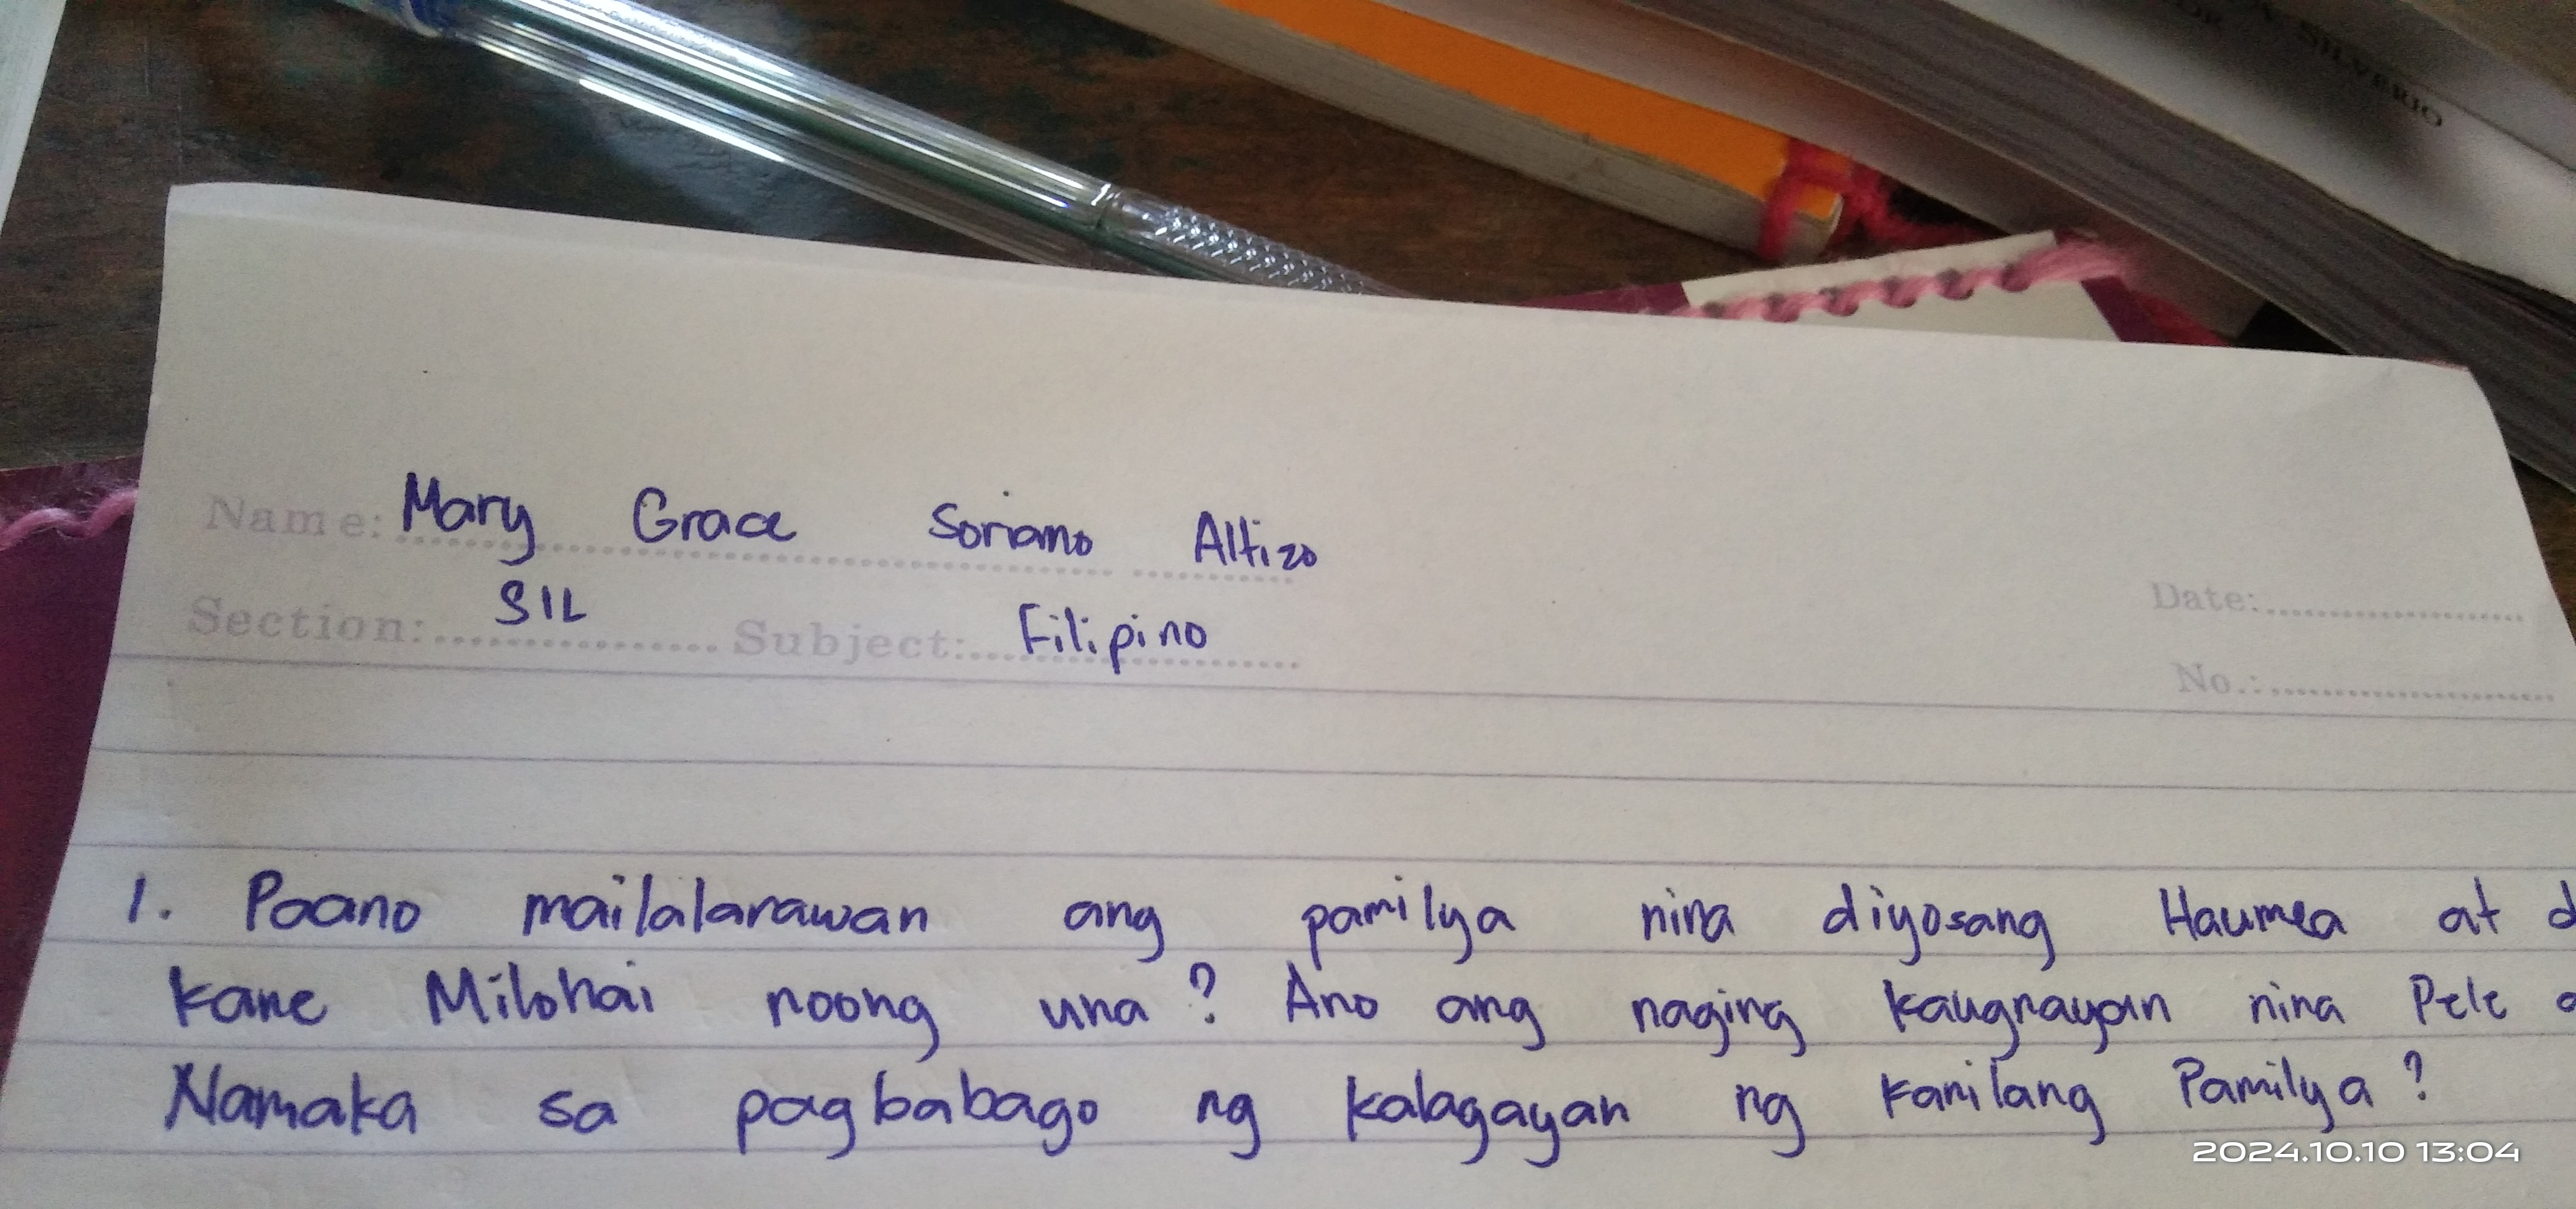 A. SILVERIO
Name: Mary Grace Soriano Altizo
Section: SIL Subject: Filipino
Date:
No.:
1. Paano mailalarawan ang pamilya nina diyosang Haumea at
kane Milohai noong una? Ano ang naging kaugnayan nina Pele
Namaka sa pagbabago ng kalagayan ng kanilang Pamilya?
2024.10.10 13:04